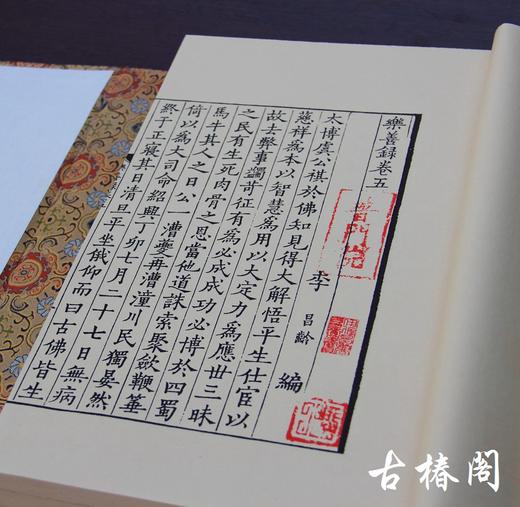 樂善録卷五
李昌齡編
太博虞公祺於佛知見得大解悟平生仕官以
慈祥為本以智慧為用以大定力為應世三昧
故去弊事蠲苛征有為必成成功必博於四蜀
之民有生死肉骨之恩當他道誅索聚斂鞭箠
馬牛其人之日公一漕夔再漕潼川民獨晏然
倚以為大司命紹興丁卯七月二十七日無病
終于正寢其日清旦平坐俄仰而曰古佛皆生
古椿閣